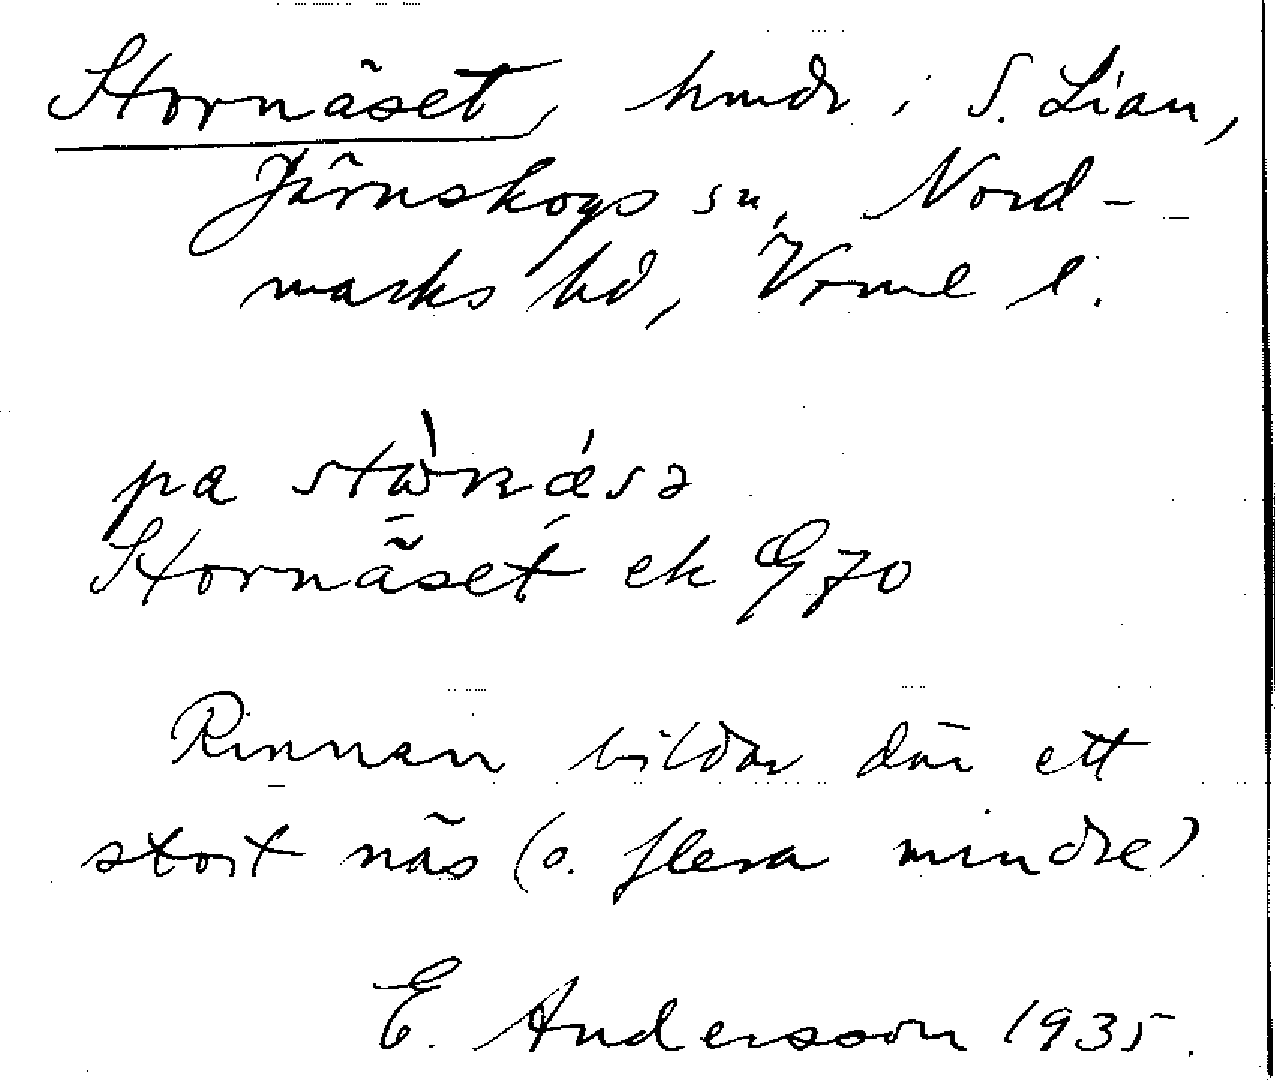 Stornäset, hmdr i S. Lian,
Järnskogs sn, Nord-
marks hd, Vrml l.
pa
Stornäset ek G70
Rinnan bildar där ett
stort näs (o. flera mindre)
E. Andersson 1935.